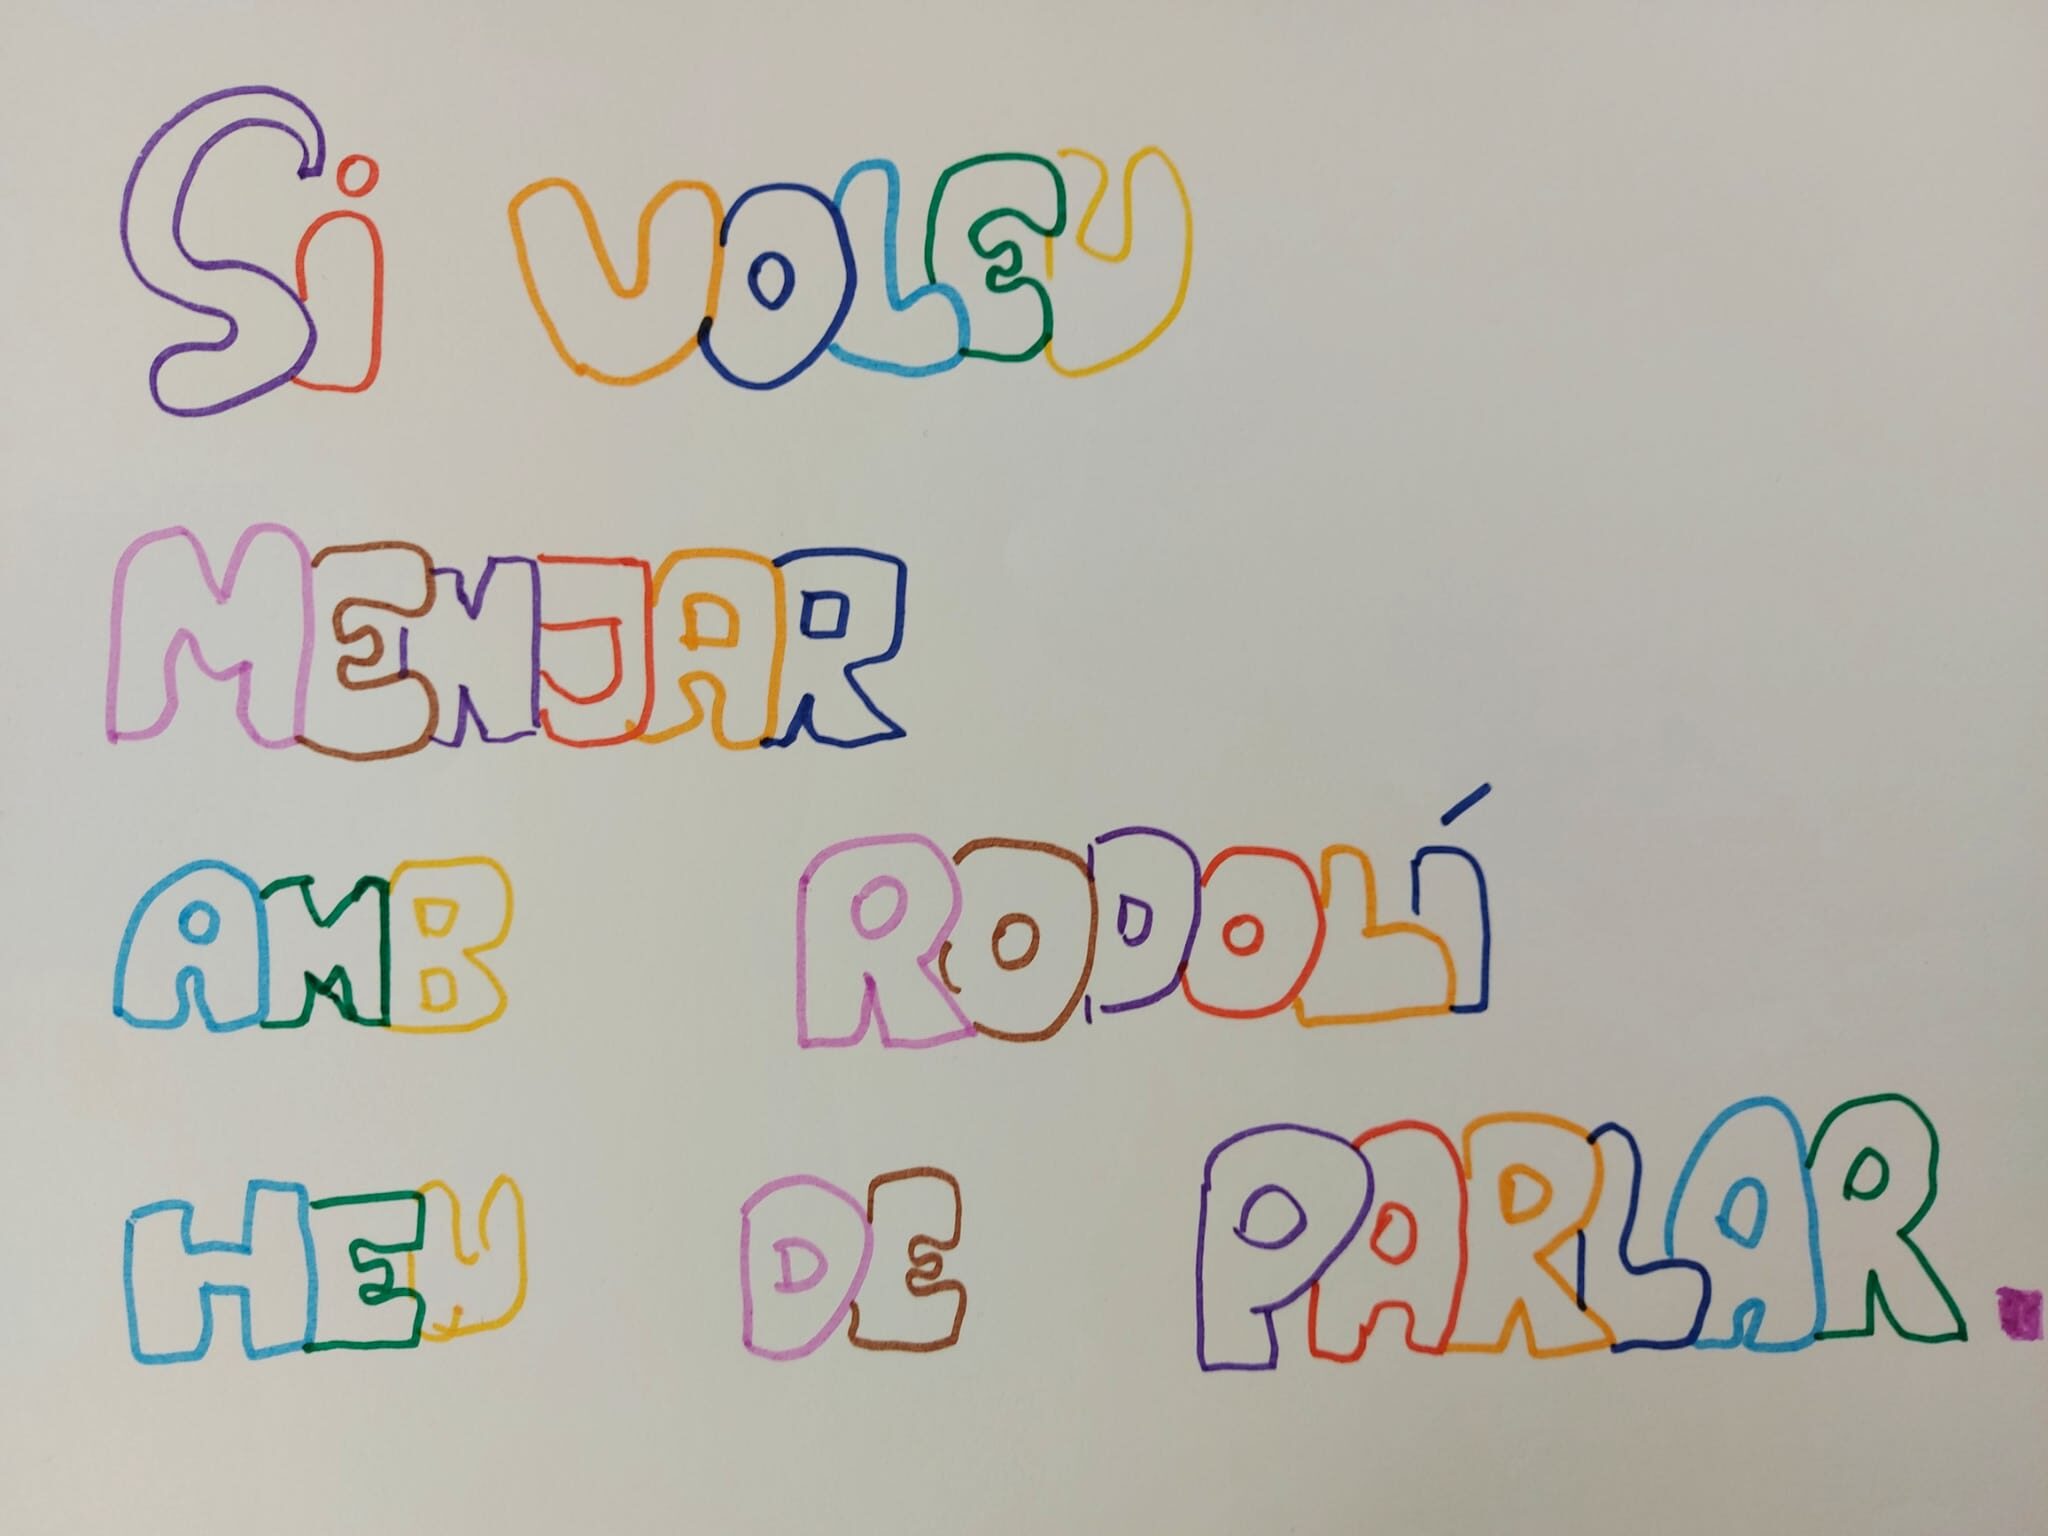 Si VOLEU
MENJAR
AMB RODOLÍ
HEU DE PARLAR.